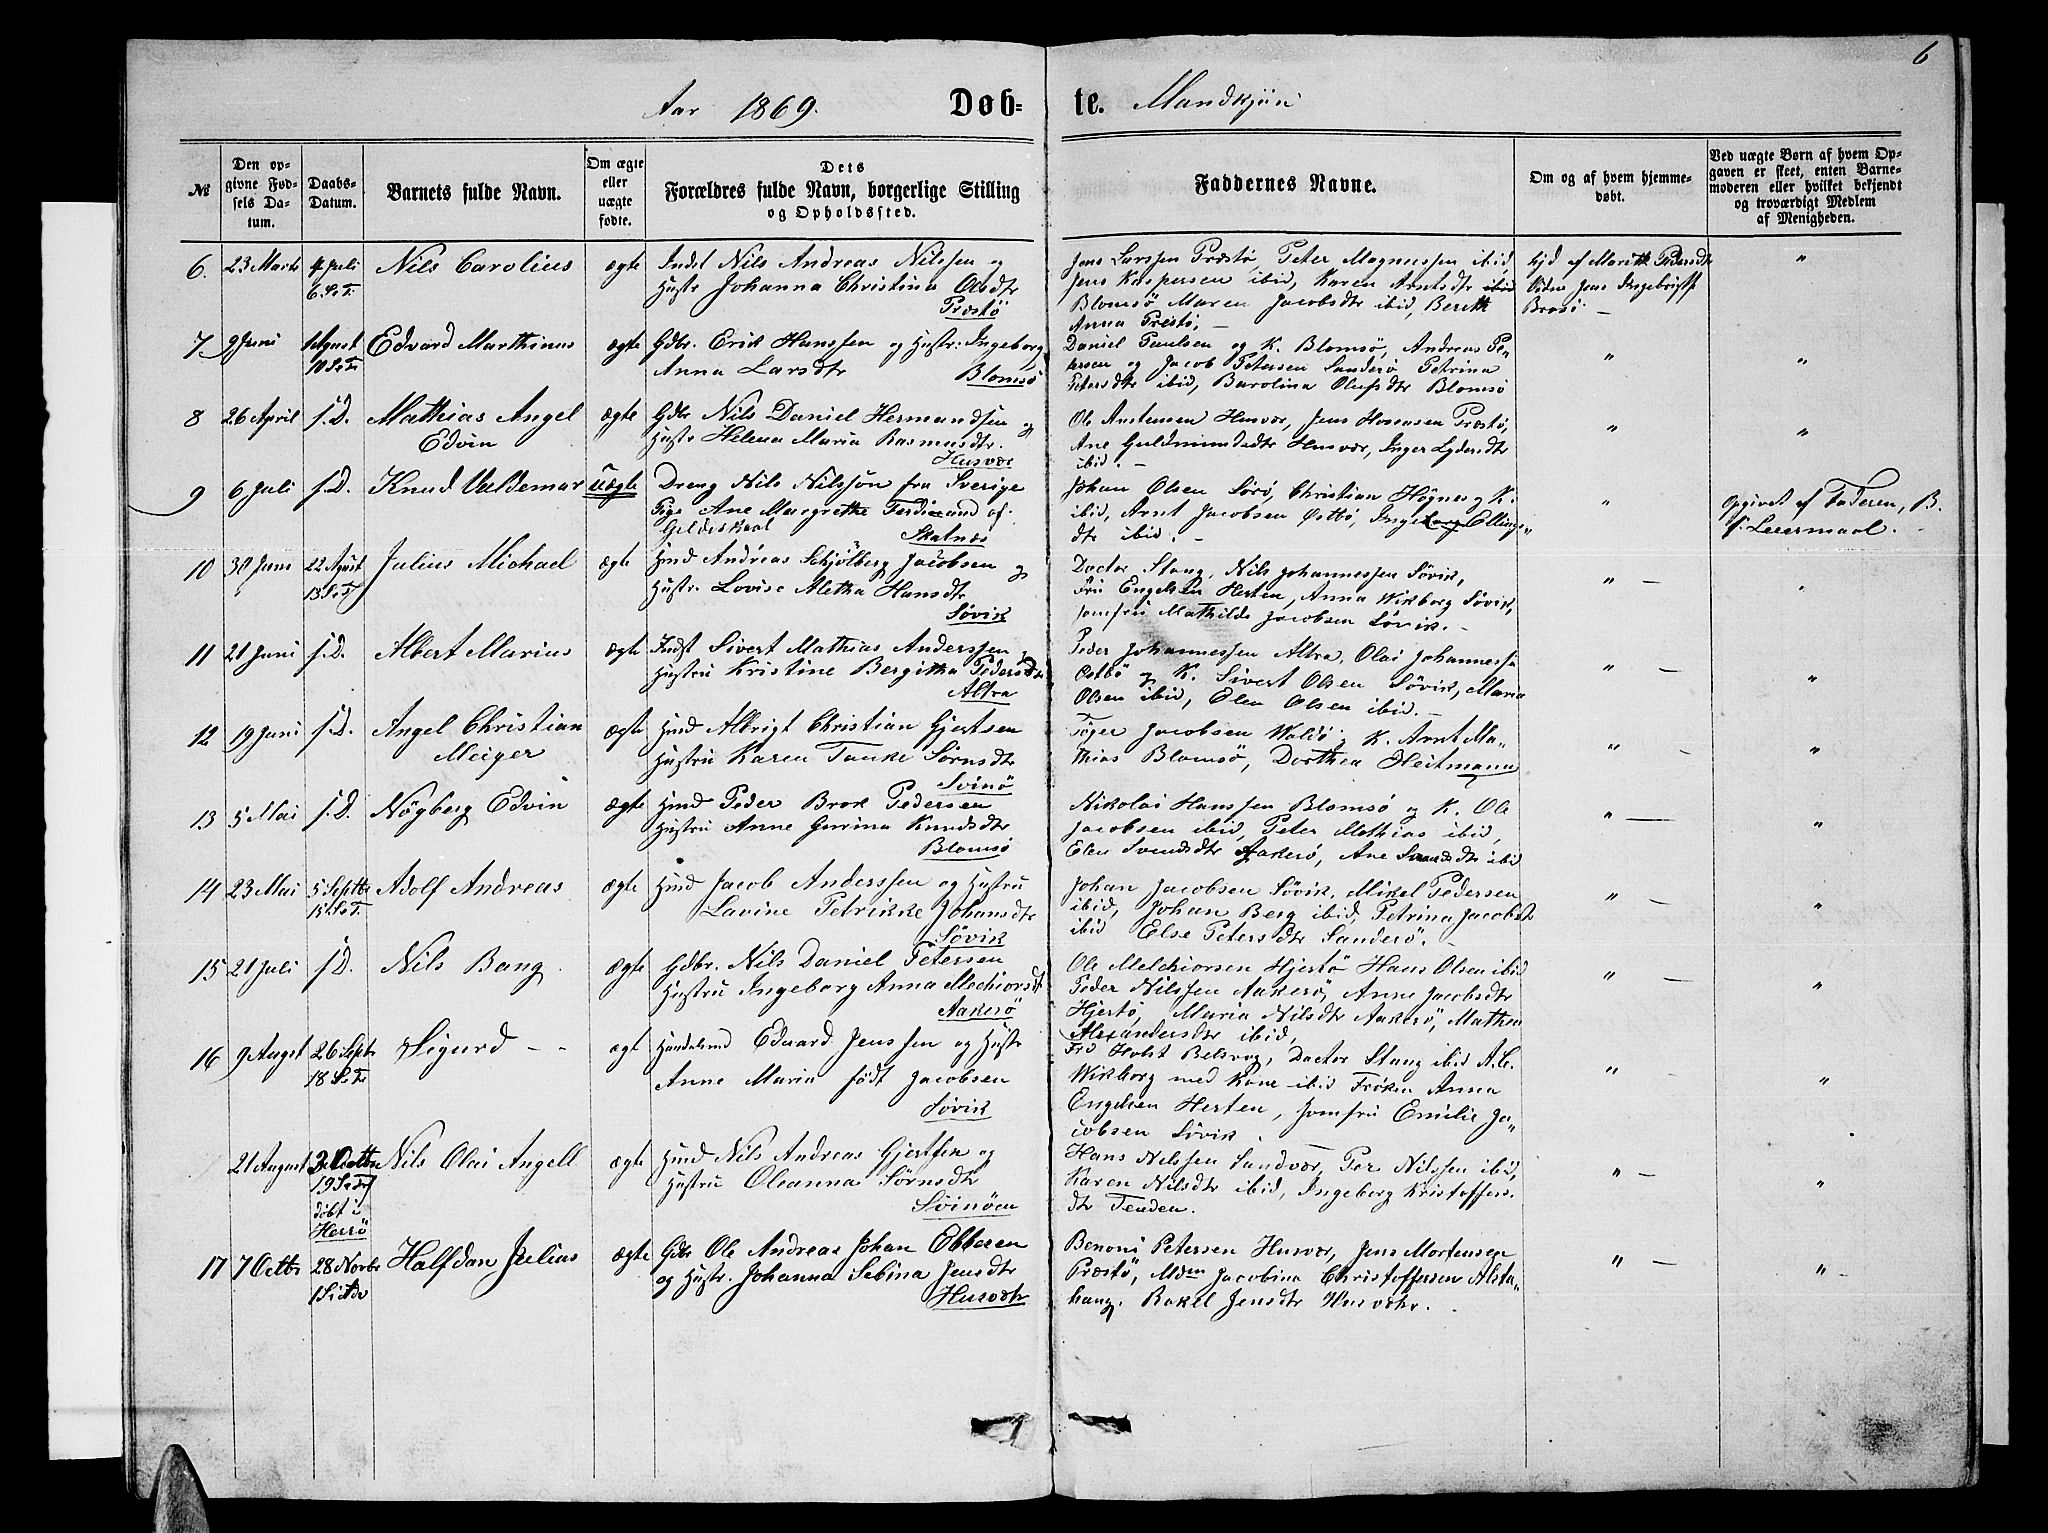 6
Aar 1869. Døb-te. Mandkjøn
№
Den op-
givne Fød-
sels Da-
tum.
Daabs-
Datum.
Barnets fulde Navn.
Om ægte
eller
uægte
fødte.
Dets
Forældres fulde Navn, borgerlige Stilling
og Opholdssted.
Faddernes Navne.
Om og af hvem hjemme-
døbt.
Ved uægte Børn af hvem Op-
gaven er skeet, enten Barne-
moderen eller hvilket bekjendt
og troværdigt Medlem
af Menigheden.
6. 23 Marts 4 Juli
6. S. e. T.
Nils Carolius
ægte
Indst Nils Andreas Nilssen og
Hustr Johanna Christina Olsdtr
Præstø
Jens Larssen Præstø, Peter Magnussen ibid,
Jens Kaspersen ibid, Karen Arntsdtr ibid
Blomsö Maren Jacobsdtr ibid, Bereth
Anna Prestø, -
Hjd af Marith Pedersdtr
Jens Ingebrigts
Brasö -
"
7 9 Juni 1 August
10 S e T
Edvard Marthinus
ægte
Gdbr. Erik Hanssen og Hustr: Ingeborg
Anna Larsdtr
Blomsø
Daniel Paulsen og K. Blomsö, Andreas Pe-
tersen og Jacob Petersen Sanderö Petrina
Petersdtr ibid, Barolina Olufsdtr Blomsö
"
"
8 26 April s. D.
Mathias Angel
Edvin
ægte
Gdbr Nils Daniel Hermandsen og
Hustr Helena Maria Rasmusdtr.
Husvær
Ole Antensen Husvær, Jens Hosensen Præstø,
Ane Guldmundsdtr Husvær, Inger Lydersdtr
ibid. -
"
"
9 6 Juli s. D.
Knud Valdemar
uægte
Dreng Nils Nilssön fra Sverige
Pige Ane Margrethe Ferdinand af
Gildeskaal
Skatnæs
Johan Olsen Sörö, Christian Högnes og K.
ibid, Arnt Jacobsen Östbö, Ingeborg Ellings-
dtr ibid. -
"
Opgivet af Faderen, B.
f. Leiermaal.
10 30 Juni 22 August
13 S e T
Julius Michael
ægte
Hmd Andreas Schjölberg Jacobsen og
Hustr. Lovise Aletha Hansdtr
Søvik
Doctor Stang, Nils Johannessen Søvik,
Fru Engelsen Herten, Anna Wikborg Søvik,
Jomfru Mathilde Jacobsen Søvik. -
" -
"
11 21 Juni s. D.
Albert Marius
ægte
Indst Sivert Mathias Anderssen og
Hustru Kristine Bergitha Pedersdtr
Altra
Peder Johannessen Altra, Olai Johannessen
Ostbö og K. Sivert Olsen Sövik, Maria
Olsen ibid, Elen Olsen ibid. -
" -
"
12 19 Juni s. D.
Angel Christian
Meiger
ægte
Hmd Albrigt Christian Gjertsen
Hustru Karen Tanke Sörnsdtr
Svinö
Töger Jacobsen Waldö og K. Arnt Ma-
thias Blomsö, Dorthea Heitmann
" -
"
13 5 Mai s. D.
Nögberg Edvin
ægte
Hmd Peder Brok Pedersen
Hustru Anne Gurina Knudsdtr
Blomsö
Nikolai Hanssen Blomsö og K. Ole
Jacobsen ibid, Peter Mathias ibid,
Elen Svendsdtr Aakerö, Ane Svendsdtr ibid
" -
"
14 23 Mai 5 Septbr
15 S. e T.
Adolf Andreas
ægte
Hmd Jacob Anderssen og Hustru
Lavine Petrikke Johansdtr
Søvik
Johan Jacobsen Søvik, Mikel Pedersen
ibid, Johan Berg ibid, Petrina Jacobsdt
ibid Else Petersdtr Sanderö. -
" -
"
15 21 Juli s. D.
Nils Bang
ægte
Gdbr. Nils Daniel Petersen
Hustru Ingeborg Anna Mechiorsdt
Aakerö
Ole Melchiorsen Hjertö Hans Olsen ibid
Peder Nilssen Aakerö, Anne Jacobsdtr
Hjertö, Maria Nilsdtr Aakerö, Mathea
Alexandersdtr ibid,
" -
"
16 9 August 26 Septr
18 S e Tr
Sigurd - -
ægt
Handelsmd Edvard Jenssen og Hustr
Anne Maria födt Jacobsen
Søvik
Holst Belsvog, Doctor Stang ibid A. C.
Wikborg med Kone ibid Frøken Anna
Engelsen Herten, Jomfru Emilie Ja-
cobsen Søvik.
" -
"
21 August 3 Octbr
19 S e Tr
döbt i
Herrö
Nils Olai Angell
ægte
Hmd Nils Andreas Gjertsen og
Hustru Oleanna Sörnsdtr
Svinöen
Hans Nilssen Sandvær, Per Nilssen ibid,
Karen Nilsdtr ibid, Ingeborg Kristoffers-
dtr Tenden.
" -
"
17 7 Octbr 28 Novbr
1 S i Adv
Halfdan Julius
ægte
Gdbr Ole Andreas Johan Ebbesen
og Hustr. Johanna Sebina Jensdtr
Husvær
Benoni Petersen Husvær, Jens Mortensen
Præstö, Mdm Jacobina Christoffersen Alsta-
haug, Rakel Jensdtr Husvær.
" -
" -